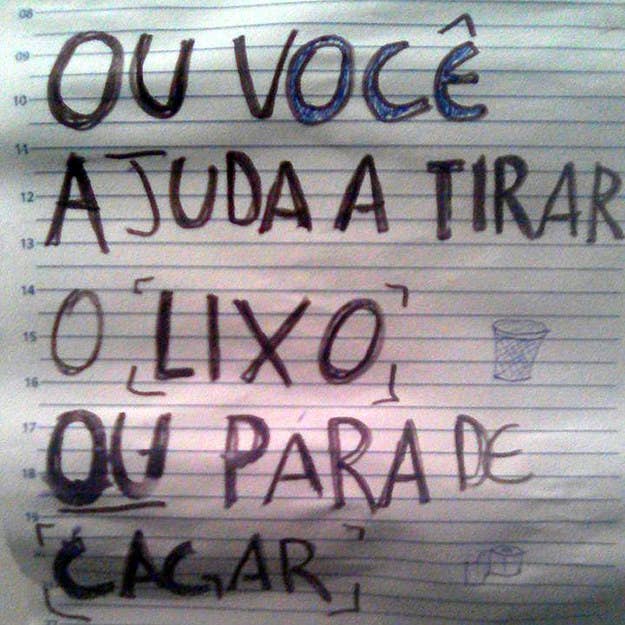 08
09
10
OU VOCÊ
11
12
AJUDA A TIRAR
13
14
15
O [LIXO]
16
17
18
OU PARA DE
19
[CAGAR]